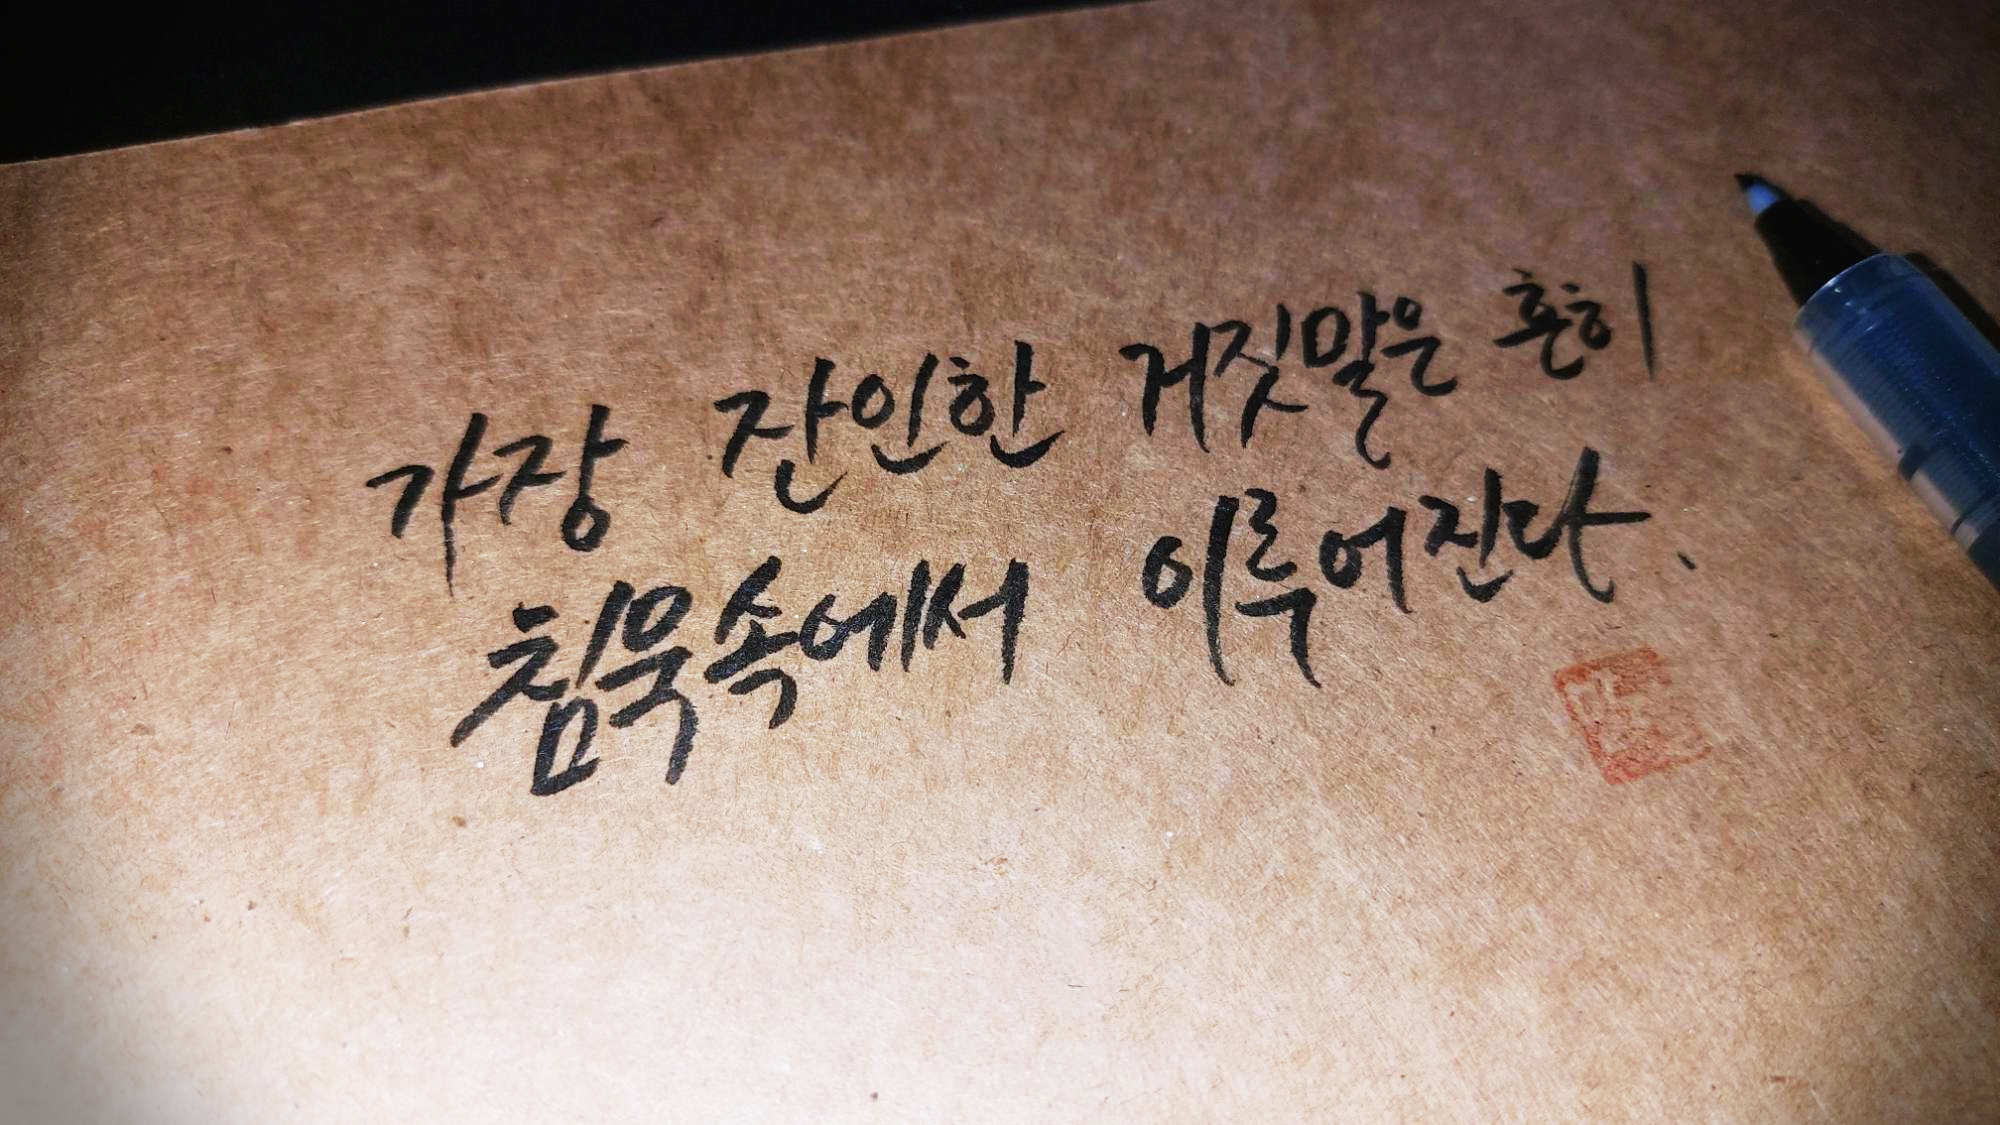 가장 잔인한 거짓말은 흔히
침묵속에서 이루어진다.